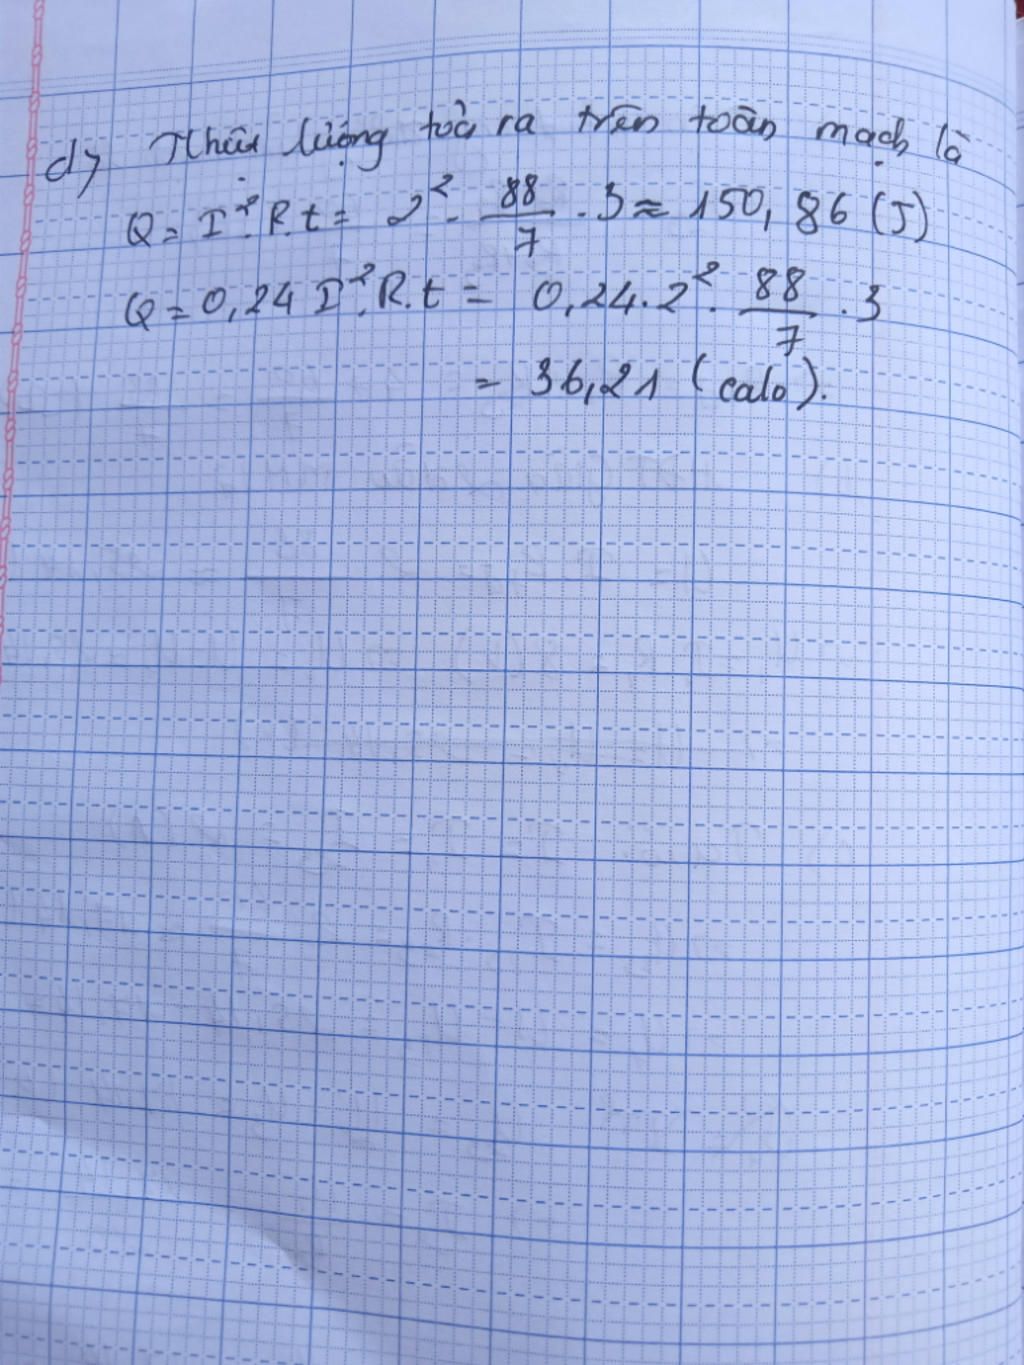 d) Nhiệt lượng toả ra trên toàn mạch là
Q = I².R.t = 2² . 88/7 . 3 ≈ 150,86 (J)
Q = 0,24 I².R.t = 0,24.2² . 88/7 . 3
= 36,21 (calo).